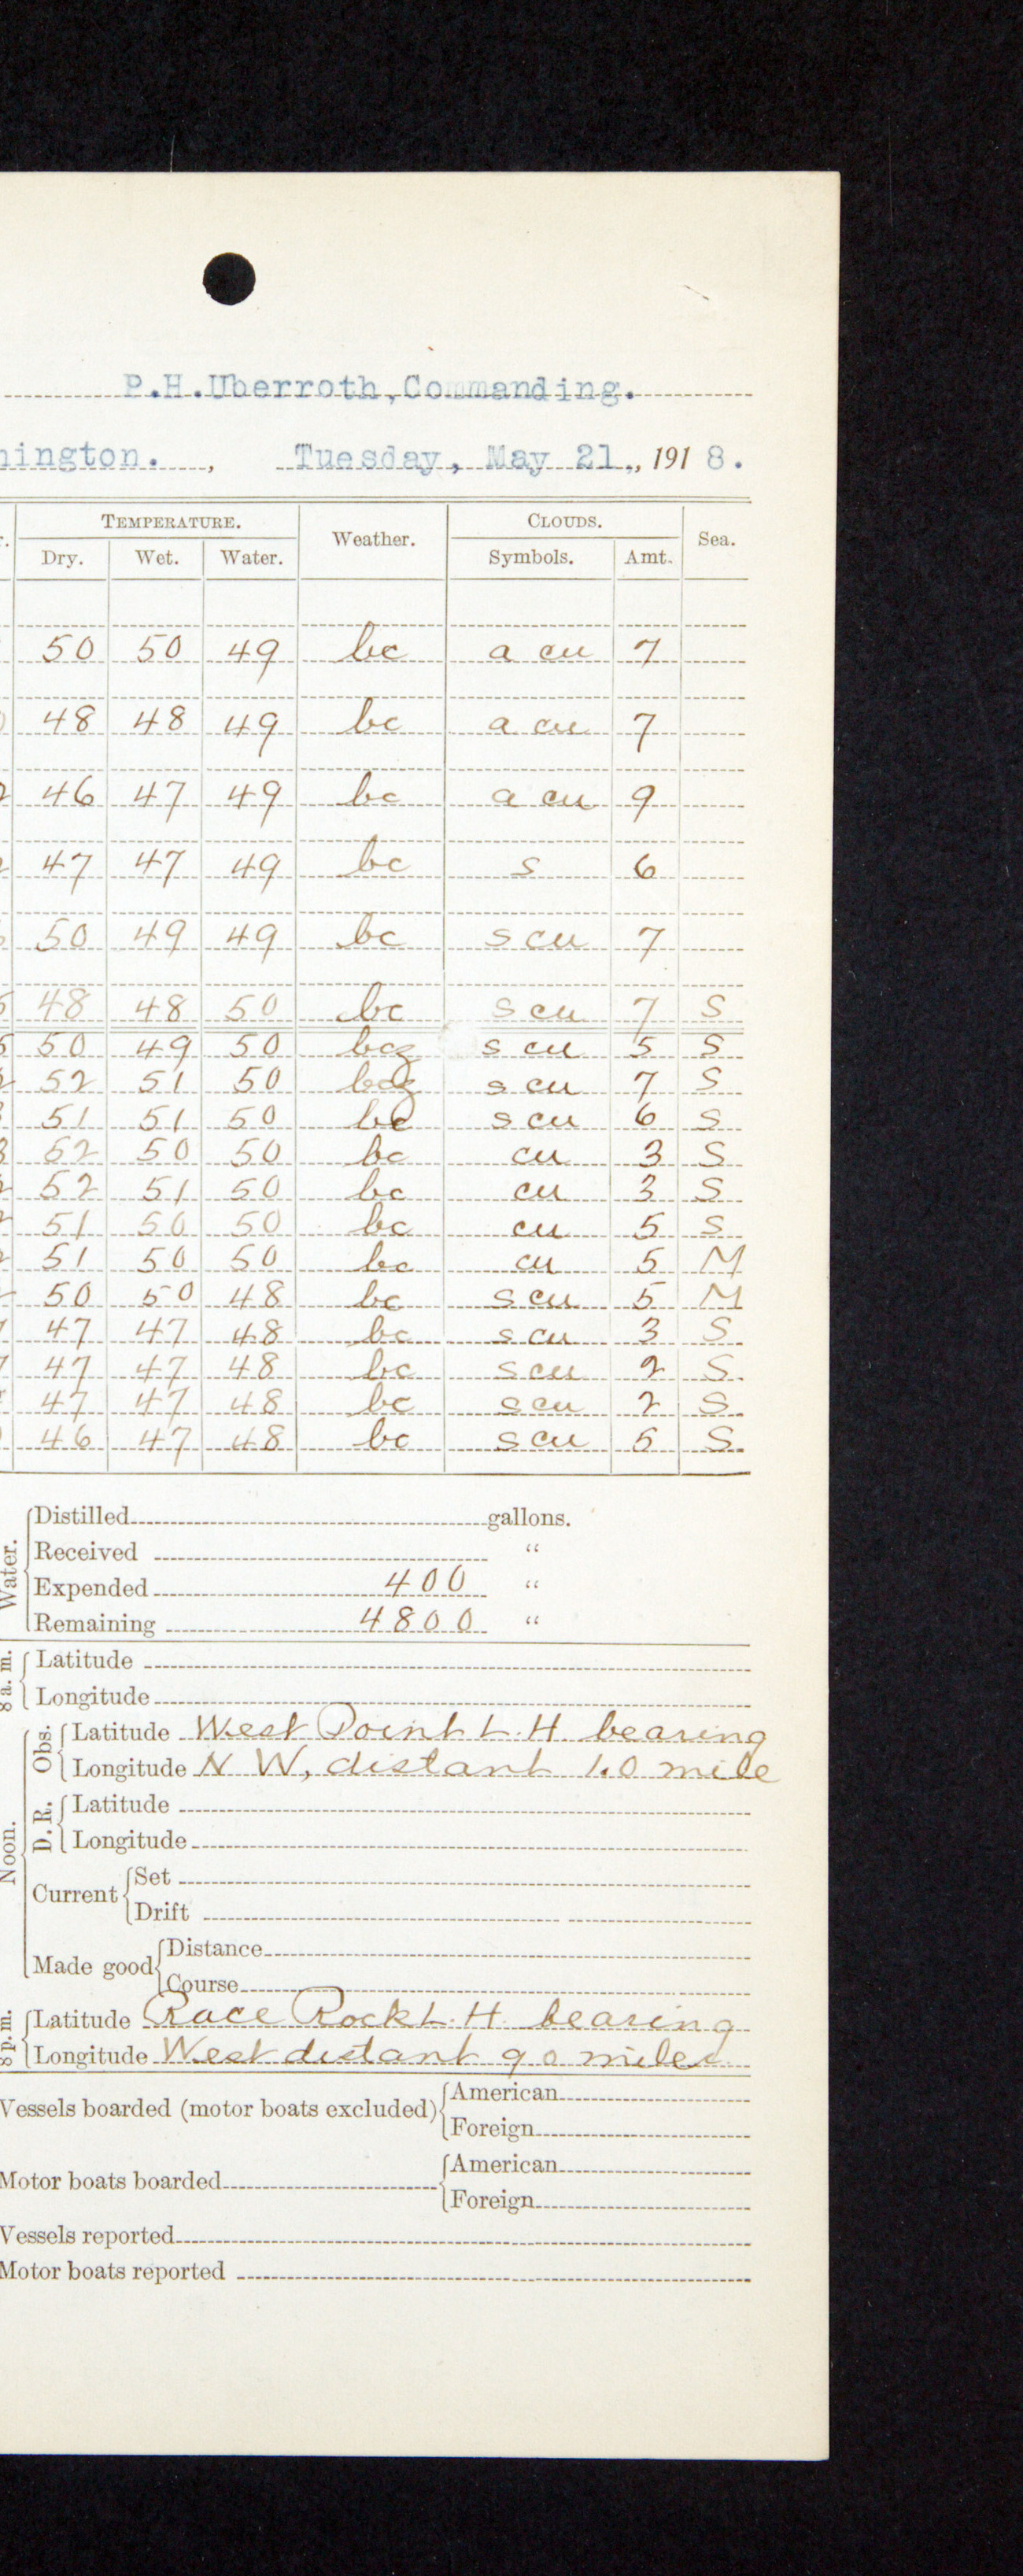 P.H.Uberroth,Commanding.
hington. , Tuesday, May 21., 1918.
TEMPERATURE. Weather. CLOUDS. Sea.
Dry. Wet. Water. Symbols. Amt.
50 50 49 bc a cu 7
48 48 49 bc a cu 7
46 47 49 bc a cu 9
47 47 49 bc s 6
50 49 49 bc s cu 7
48 48 50 bc s cu 7 S
50 49 50 bcz s cu 5 S
52 51 50 bcz s cu 7 S
51 51 50 bc s cu 6 S
52 50 50 bc cu 3 S
52 51 50 bc cu 3 S
51 50 50 bc cu 5 S
51 50 50 bc cu 5 M
50 50 48 bc s cu 5 M
47 47 48 bc s cu 3 S
47 47 48 bc s cu 2 S
47 47 48 bc s cu 2 S
46 47 48 bc s cu 5 S
Water.
Distilled gallons.
Received "
Expended 400 "
Remaining 4800 "
8 a. m.
Latitude
Longitude
Noon.
Obs.
Latitude West Point L.H. bearing
Longitude N W, distant 1.0 mile
D. R.
Latitude
Longitude
Current
Set
Drift
Made good
Distance
Course
8 p. m.
Latitude Race Rock L.H. bearing
Longitude West distant 9 0 miles
Vessels boarded (motor boats excluded)
American
Foreign
Motor boats boarded
American
Foreign
Vessels reported
Motor boats reported